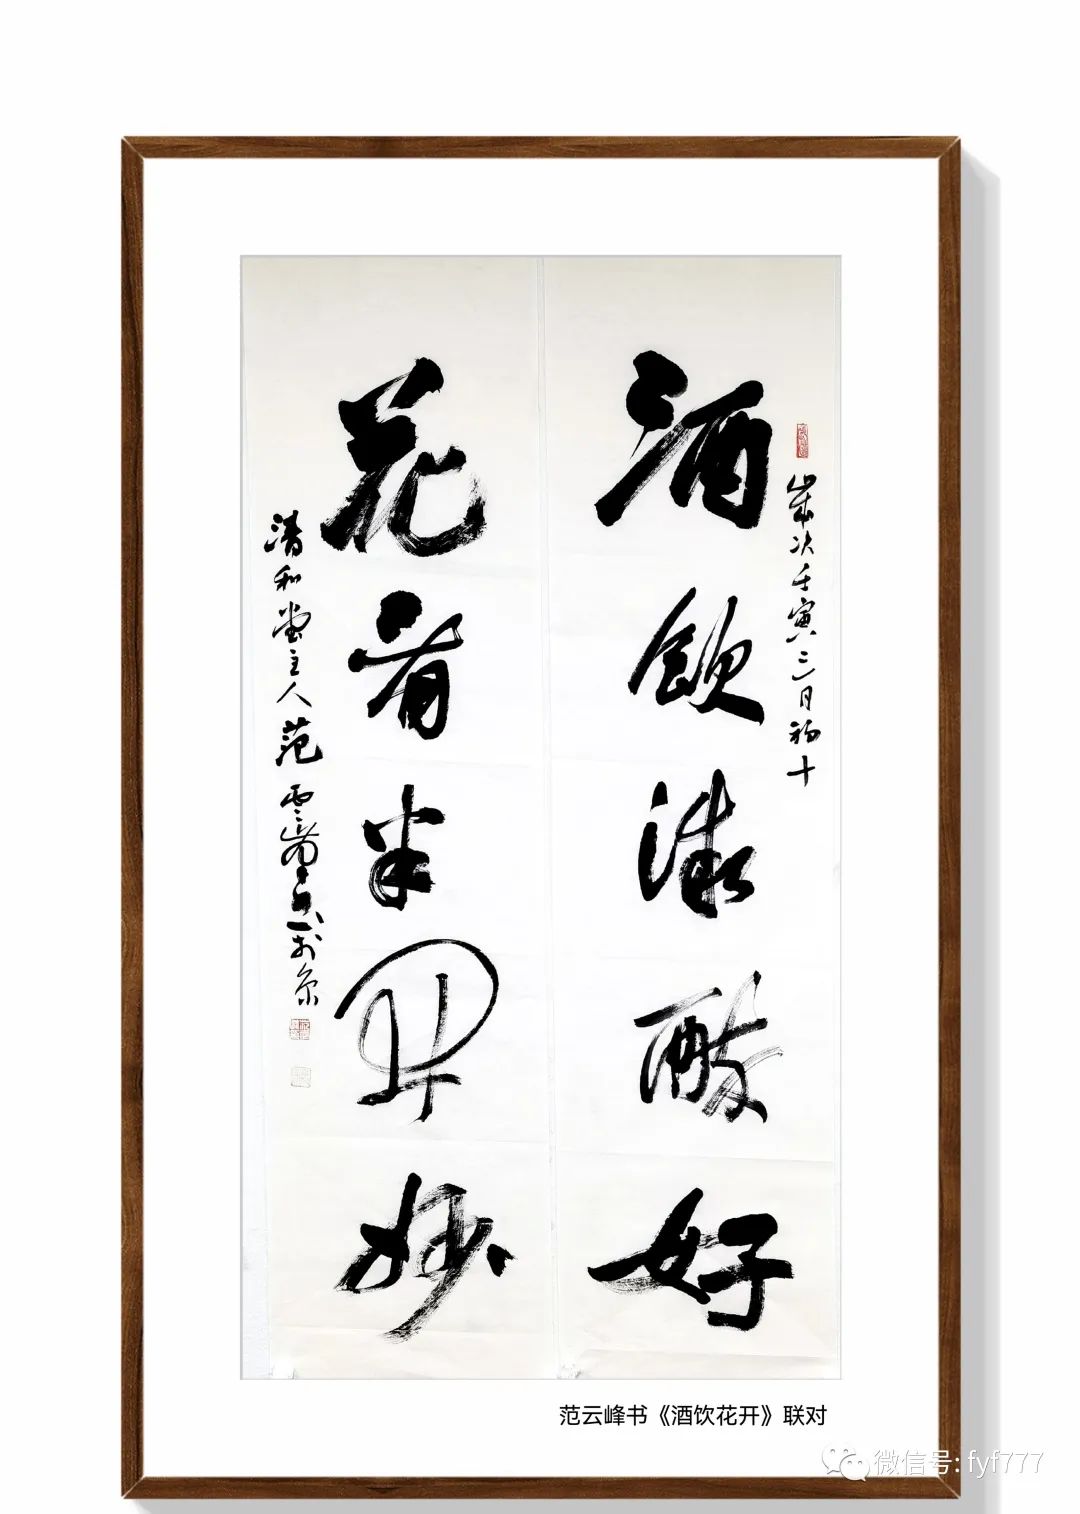 歲次壬寅三月初十
酒飲微好
花看半開妙
清和堂主人范雲峯於京
范云峰书《酒饮花开》联对
微信号: fyf777